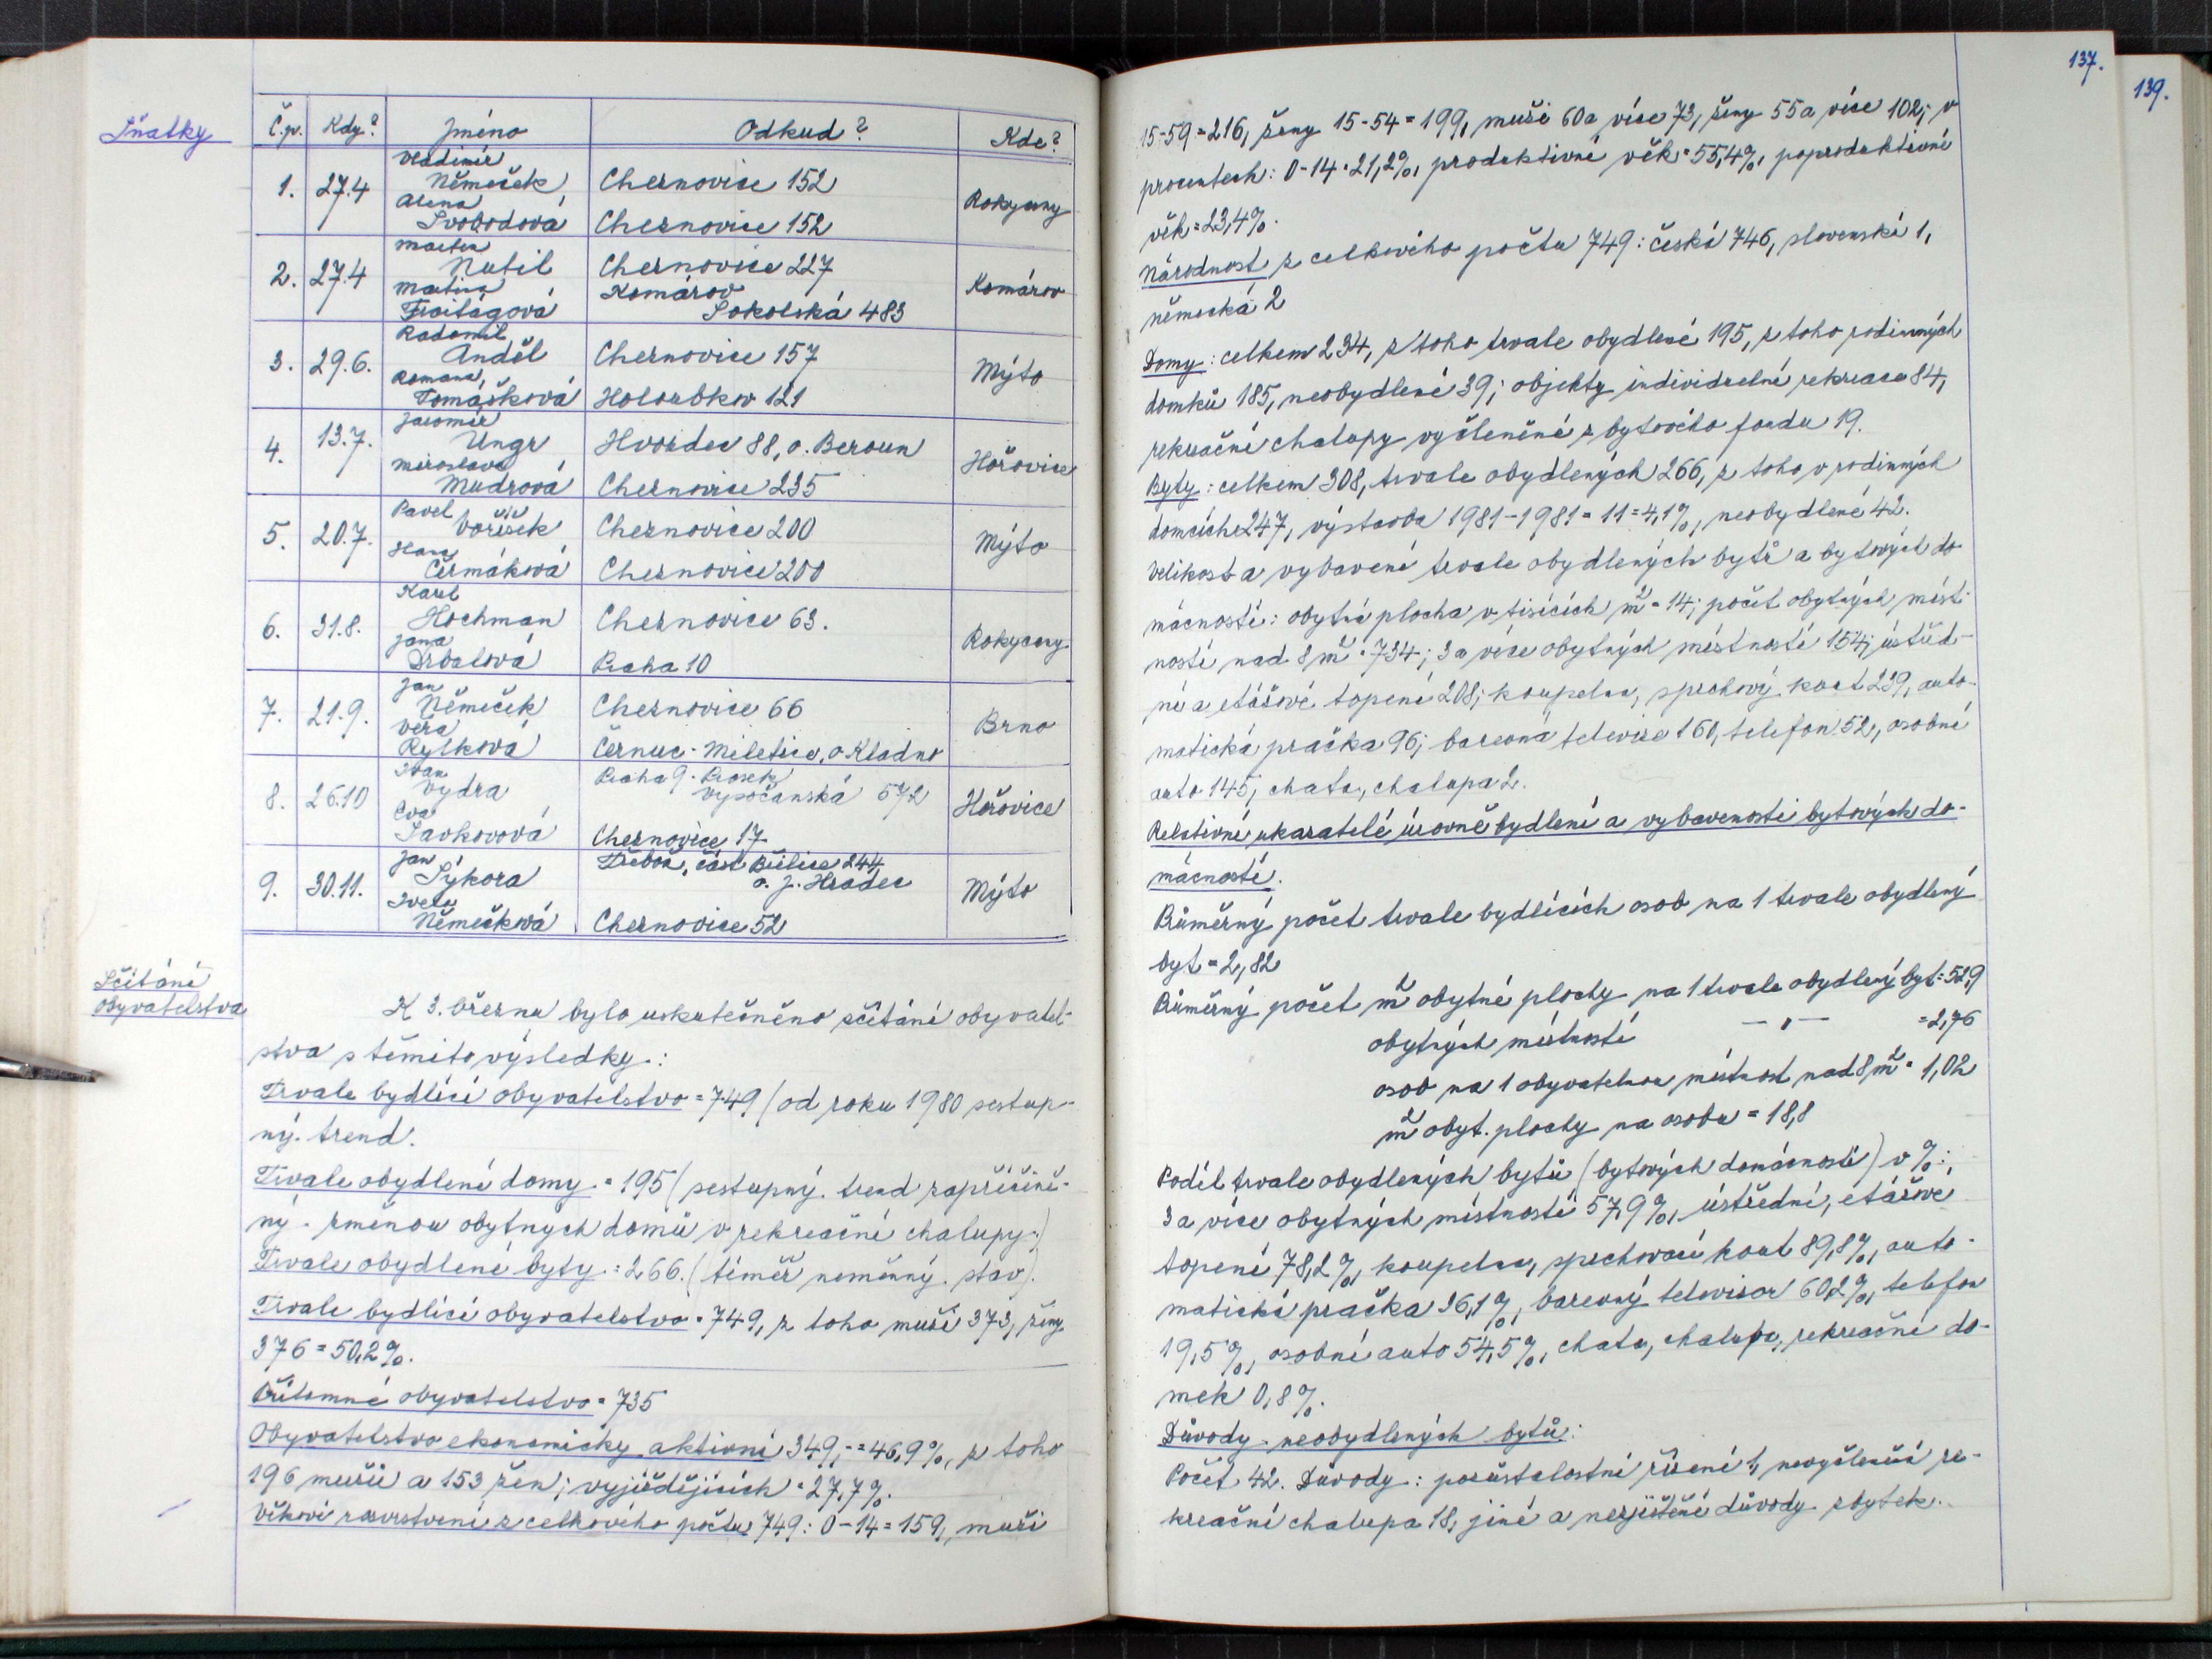 Sňatky
Č.p. Kdy? Jméno Odkud? Kde?
Vladimír
1. 27.4 Němeček Chernovice 152 Rokycany
Alena
Svobodová Chernovice 152
Martin
2. 27.4 Nutil Chernovice 227 Komárov
Martina Komárov
Fraitágová Sokolská 483
Radomil
3. 29.6. Anděl Chernovice 157 Mýto
Romana
Tomášková Holoubkov 121
Jaromír
4. 13.7. Ungr Hvozdec 88, o. Beroun Hořovice
Miroslava
Mudrová Chernovice 235
Pavel
5. 20.7. Voříšek Chernovice 200 Mýto
Hana
Čermáková Chernovice 200
Karel
6. 31.8. Hochman Chernovice 63. Rokycany
Jana
Drbalová Praha 10
Jan
7. 21.9. Němeček Chernovice 66 Brno
Věra
Rylková Černuc - Miletice, o. Kladno
Ivan Praha 9 - Prosek
8. 26.10 Vydra Vysočanská 572 Hořovice
Eva
Savkovová Chernovice 17
Jan Třeboň, část Břilice 244,
9. 30.11. Sýkora o. J. Hradec Mýto
Iveta
Němečková Chernovice 52
Sčítání
obyvatelstva
K 3. březnu bylo uskutečněno sčítání obyvatel-
stva s těmito výsledky:
Trvale bydlící obyvatelstvo = 749 (od roku 1980 sestup-
ný trend.
Trvale obydlené domy = 195 (sestupný trend zapříčině-
ný - změnou obytnych domů v rekreační chalupy.)
Trvale obydlené byty = 266. (téměř neměnný stav).
Trvale bydlící obyvatelstvo = 749, z toho muži 373, ženy
376 = 50,2%.
Přítomné obyvatelstvo = 735
Obyvatelstvo ekonomicky aktivní 349,- = 46,9%, z toho
196 mužů a 153 žen; vyjíždějících = 27,7%.
Věkové rozvrstvení z celkového počtu 749: 0-14 = 159, muži
137.
139.
15-59 = 216, ženy 15-54 = 199, muži 60 a více 73, ženy 55 a více 102; v
procentech: 0-14 = 21,2%, produktivní věk = 55,4%, poproduktivní
věk = 23,4%.
Národnost z celkového počtu 749: české 746, slovenské 1,
německá 2
Domy: celkem 234, z toho trvale obydlené 195, z toho rodinných
domků 185, neobydlené 39; objekty individuelní rekreace 84,
rekreační chalupy vyčleněné z bytového fondu 19.
Byty: celkem 308, trvale obydlených 266, z toho v rodinných
domcích 247, výstavba 1981-1981 = 11 = 4,1%, neobydlené 42.
Velikost a vybavení trvale obydlených bytů a bytových do-
mácností: obytná plocha v tisících m² = 14; počet obytných míst-
ností nad 8 m² = 734; 3 a více obytných místností 154; ústřed-
ní a etážové topení 208; koupelna, sprchový kout 239, auto-
matická pračka 96; barevná televize 160, telefon 52, osobní
auto 145, chata, chalupa 2.
Relativní ukazatelé úrovně bydlení a vybavenosti bytových do-
mácností.
Průměrný počet trvale bydlících osob na 1 trvale obydlený
byt = 2,82
Průměrný počet m² obytné plochy na 1 trvale obydlený byt = 52,9
obytných místností — " — = 2,76
osob na 1 obyvatelnou místnost nad 8 m² = 1,02
m² obyt. plochy na osobu = 18,8
Podíl trvale obydlených bytů (bytových domácností) v %:
3 a více obytných místností 57,9%, ústřední, etážové
topení 78,2%, koupelna, sprchovací kout 89,8%, auto-
matická pračka 36,1%, barevný televizor 60,2%, telefon
19,5%, osobní auto 54,5%, chata, chalupa, rekreační do-
mek 0,8%.
Důvody neobydlených bytů:
Počet 42. Důvody: pozůstalostní řízení 1, nevyčleněná re-
kreační chalupa 18, jiné a nezjištěné důvody zbytek.